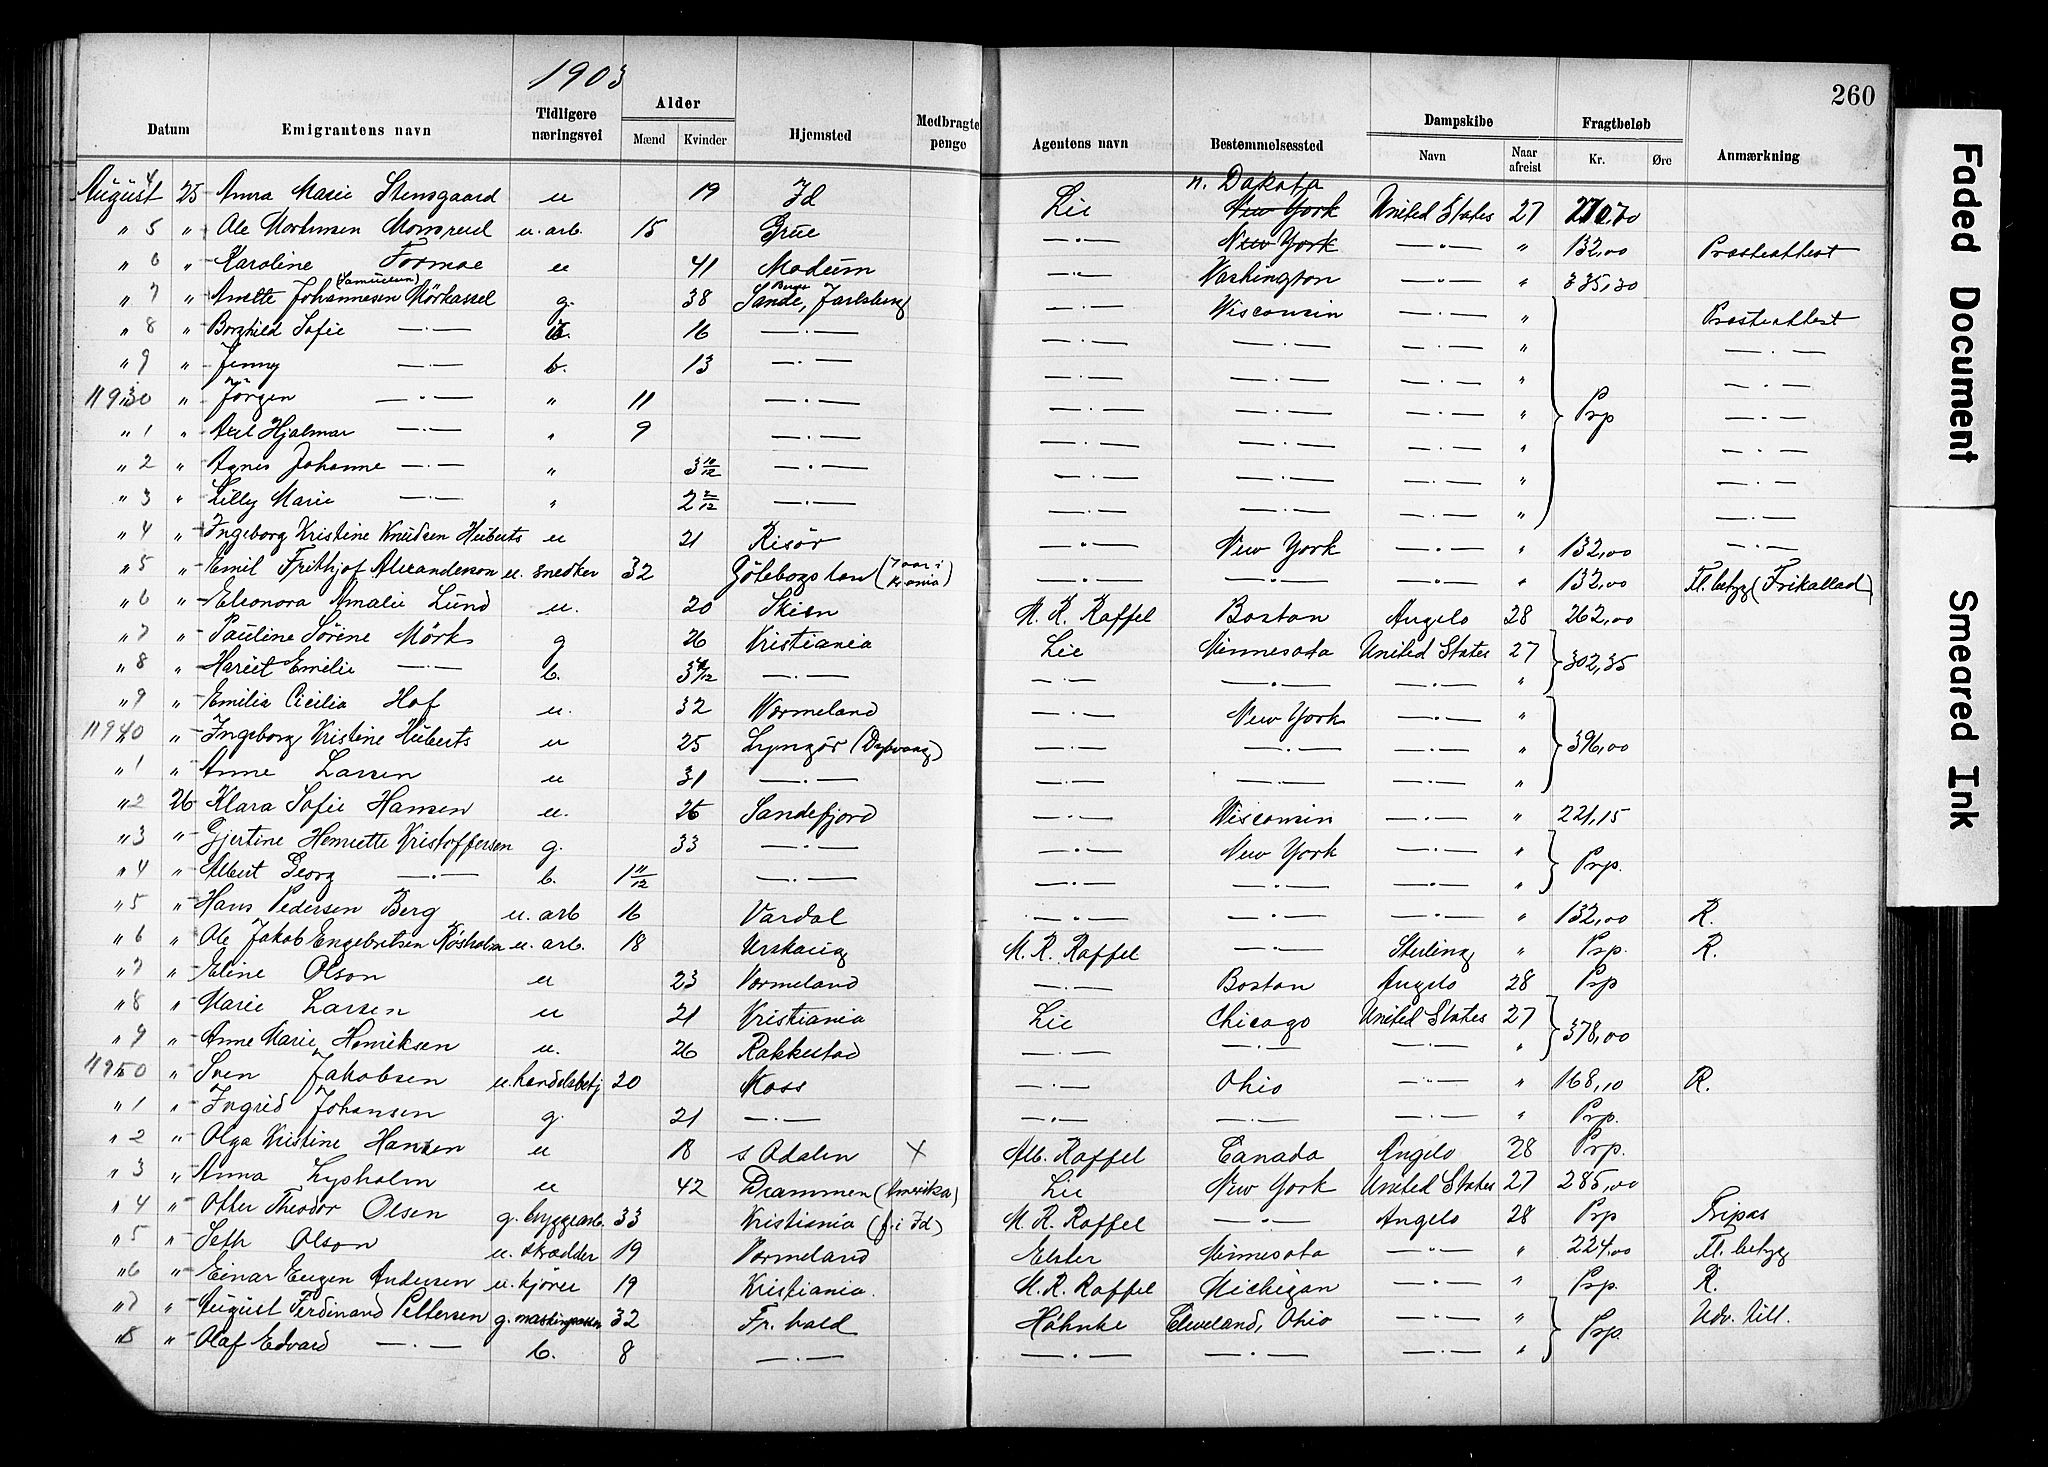 1903
260
Datum | Emigrantens navn | Tidligere næringsvei | Alder Mænd | Kvinder | Hjemsted | Medbragte penge | Agentens navn | Bestemmelsessted | Dampskibe Navn | Naar afreist | Fragtbeløb Kr. | Øre | Anmærkning
August 4 25 Anna Marie Stensgaard u 19 Id Lie n. Dakota New York United States 27
" 5 " Ole Mortensen u. arb. 15 Grue — " — New York — " — " 132,00 Presteattest
" 6 " Karoline Formoe u 41 Modum — " — Washington — " — " 335,30
" 7 " Anette Johannesen (Samuelsen) Mörkassel g. 38 Sande, Jarlsberg — " — Wisconsin — " — " Presteattest
" 8 " Borghild Sofie — " — 16 — " — — " — — " — — " — " — " —
" 9 " Jenny — " — b. 13 — " — — " — — " — — " — " — " —
11930 " Jörgen — " — " 11 — " — — " — — " — — " — " Prp — " —
" 1 " Axel Hjalmar — " — " 9 — " — — " — — " — — " — " — " —
" 2 " Agnes Johanne — " — " 3 10/12 — " — — " — — " — — " — " — " —
" 3 " Lilly Marie — " — " 2 2/12 — " — — " — — " — — " — " — " —
" 4 " Ingeborg Kristine Knudsen Huberts u 21 Risör — " — New York — " — " 132,00 — " —
" 5 " Emil Frithjof Alexanderson u. snedker 32 Göteborgs lan (7 aar i Kr.ania) — " — — " — — " — " 132,00 Fl. betyg (Frikallad)
" 6 " Eleonora Amalie Lund u. 20 Skien M. R. Raffel Boston Angelo 28 262,00
" 7 " Pauline Sörine Mörk g 26 Kristiania Lie Minnesota United States 27 302,35
" 8 " Hariet Emilie — " — b. — " — — " — — " — — " — "
" 9 " Emilia Cicilia Hof u. 32 Vermeland — " — New York — " — "
11940 " Ingeborg Kristine Huberts u 25 Lyngör (Dybvaag) — " — — " — — " — " 396,00
" 1 " Anne Larsen u 31 — " — — " — — " — — " — "
" 2 26 Klara Sofie Hansen u. 26 Sandefjord — " — Wisconsin — " — " 221,15
" 3 " Gjertine Henriette Kristoffersen g. 33 — " — — " — New York — " — " Prp.
" 4 " Albert Georg — " — b. 1 11/12 — " — — " — — " — — " — "
" 5 " Hans Pedersen Berg u. arb 16 Vardal — " — — " — — " — " 132,00 R.
" 6 " Ole Jakob Engebretsen Kösholm u. arb. 18 Urskaug M. R. Raffel — " — Sterling " Prp. R.
" 7 " Eline Olson u 23 Vermeland — " — Boston Angelo 28 Prp
" 8 " Marie Larsen u 21 Kristiania Lie Chicago United States 27 378,00
" 9 " Anne Marie Henriksen u. 26 Rakkestad — " — — " — — " — "
11950 " Sven Jakobsen u. handelsbetj 20 Moss — " — Ohio — " — " 168,10 R.
" 1 " Ingrid Johansen g. 21 — " — — " — — " — — " — " Prp.
" 2 " Olga Kristine Hansen u 18 s Odalen X Alb. Raffel Canada Angelo 28 Prp.
" 3 " Anna Lysholm u 42 Drammen (Amerika) Lie New York United States 27 285,00
" 4 " Otter Theodor Olsen g. byggearb. 33 Kristiania (f. i Id) M. R. Raffel — " — Angelo 28 Prp Fripas
" 5 " Seth Olson u. skrædder 19 Vermeland Elster Minnesota — " — " 224,00 Fl. betyg
" 6 " Einar Eugen Andersen u. kjörer 19 Kristiania. M. R. Raffel Michigan — " — " Prp. R.
" 7 " August Ferdinand Pettersen g. maskinpasser 32 Fr. hald Höhnke Cleveland, Ohio — " — " Prp. Udv. till.
" 8 " Olaf Edvard — " — b. 8 — " — — " — — " — — " — "
Faded Document
Smeared Ink